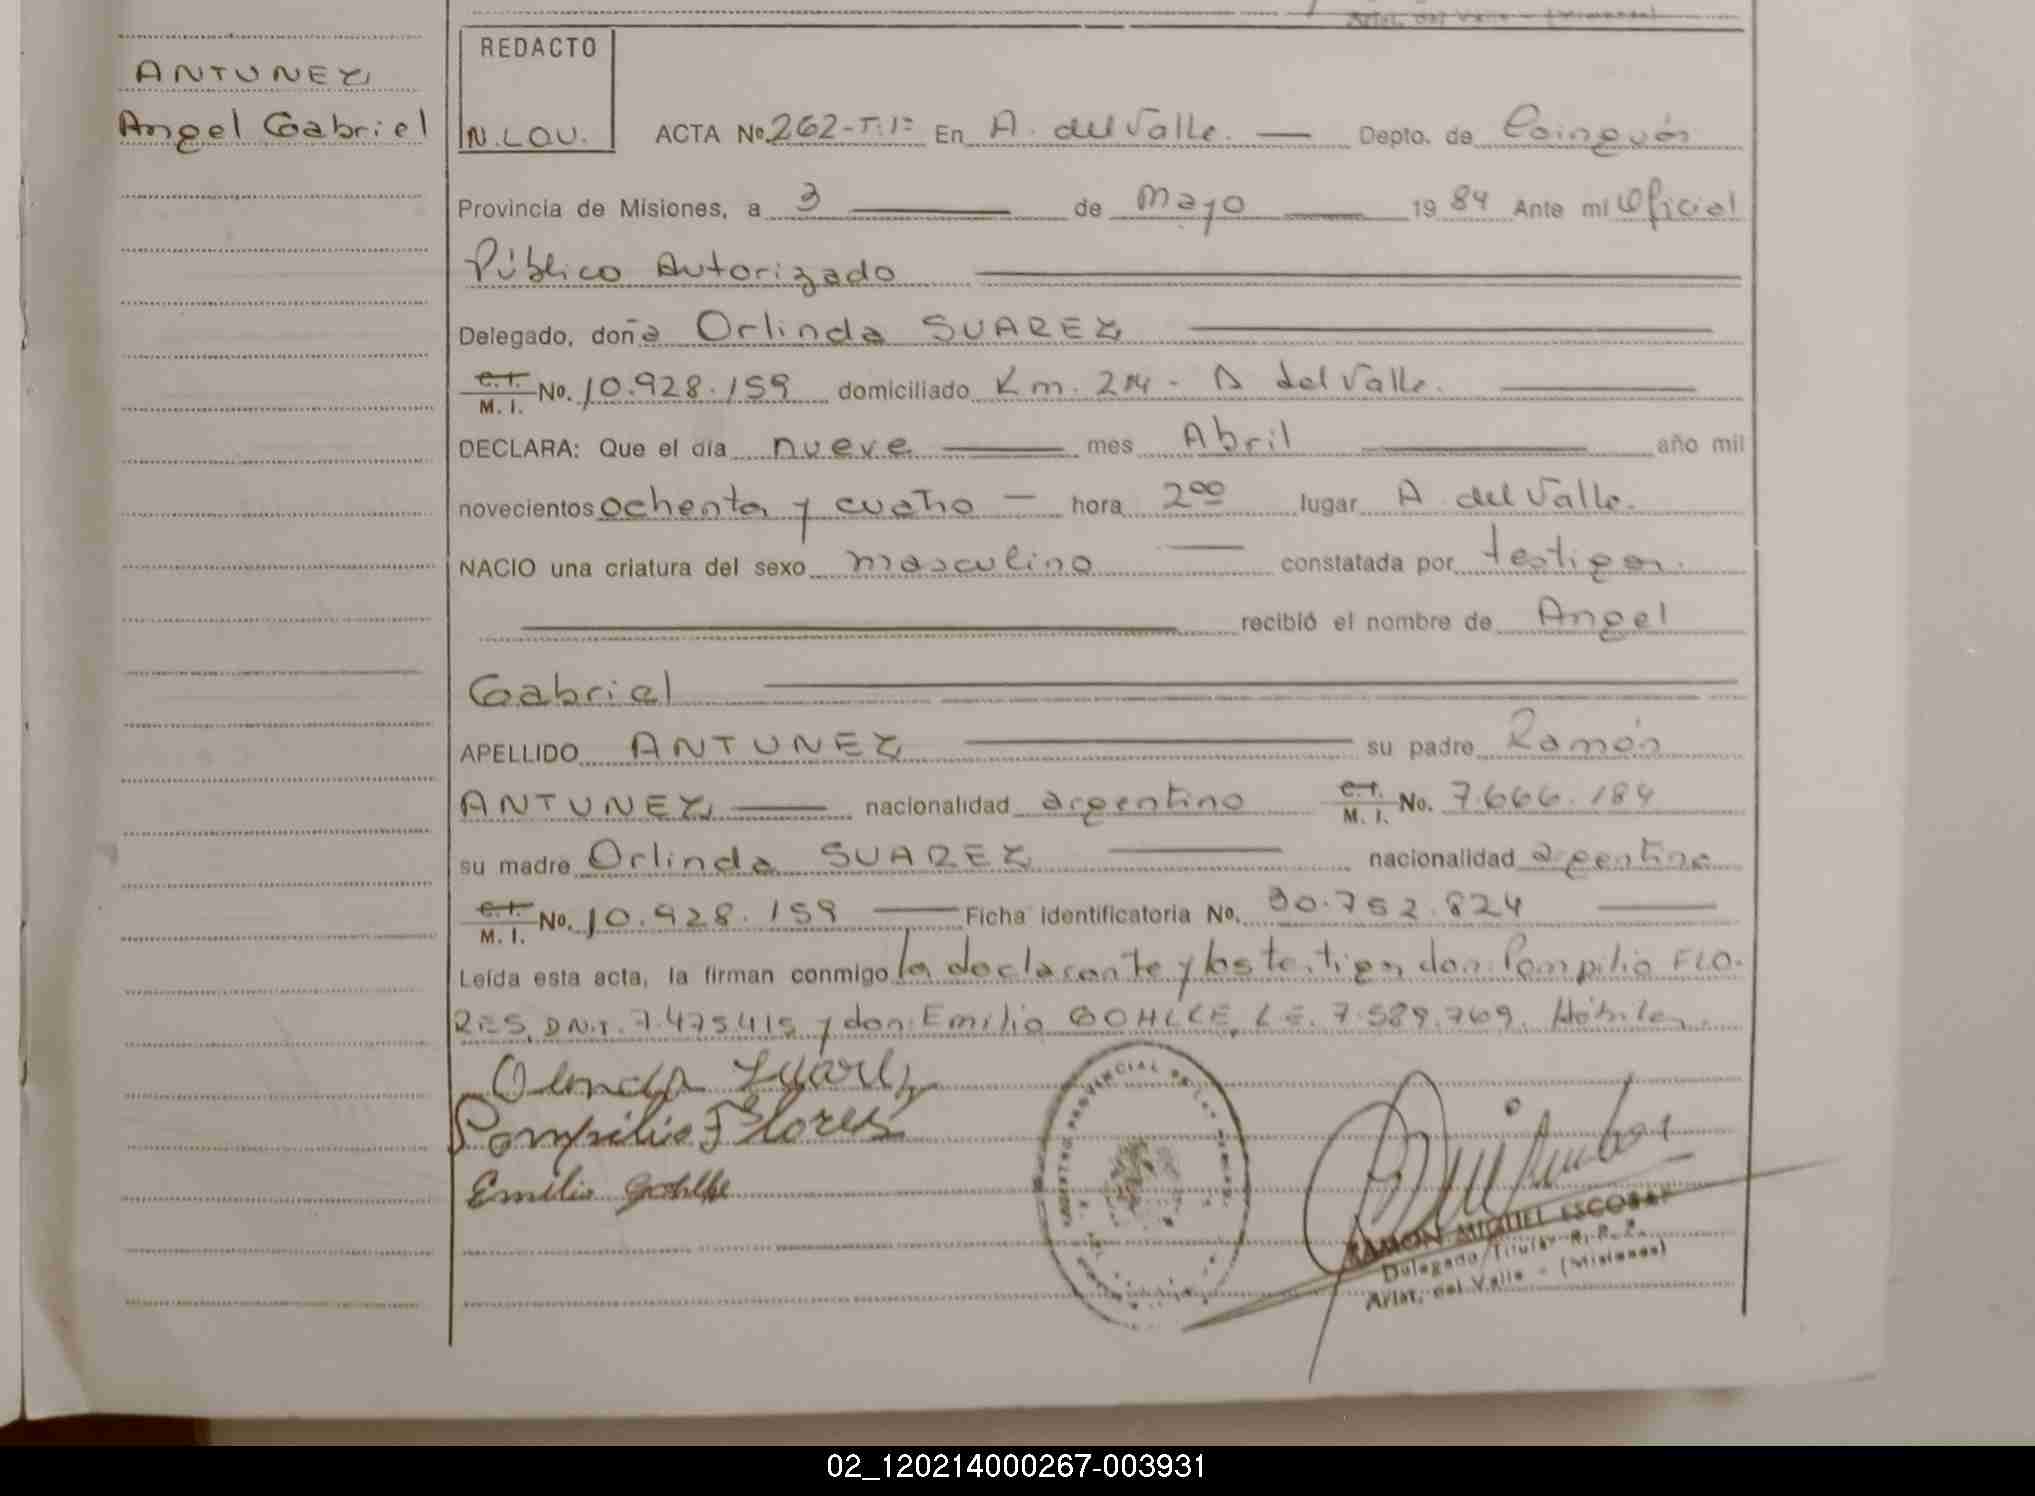 ANTUNEZ
Angel Gabriel
REDACTO
N. LOV.
ACTA No. 262-T:1º En A. del Valle. — Depto. de Cainguás
Provincia de Misiones, a 3 — de Mayo — 1984 Ante mi Oficial
Público Autorizado
Delegado, doña Orlinda SUAREZ
C. I. M. I. No. 10.928.159 domiciliado Km. 214 - A del Valle.
DECLARA: Que el día nueve — mes Abril — año mil
novecientos ochenta y cuatro — hora 2⁰⁰ lugar A del Valle.
NACIO una criatura del sexo masculino — constatada por testigos.
recibió el nombre de Angel
Gabriel
APELLIDO ANTUNEZ — su padre Ramón
ANTUNEZ — nacionalidad argentino C. I. M. I. No. 7.666.184
su madre Orlinda SUAREZ — nacionalidad argentina
C. I. M. I. No. 10.928.159 — Ficha identificatoria No. 30.752.824 —
Leída esta acta, la firman conmigo la declarante y los testigos don: Pompilio FLO-
RES, D.N.I. 7.475.415 y don: Emilio GOHLKE, L.E. 7.589.769. Hábiles.
Pompilio Flores
Emilio Gohlke
REGISTRO PROVINCIAL DE LAS PERSONAS
RAMON MIGUEL ESCOBAR
Delegado Titular R. P. P.
Arist. del Valle - (Misiones)
02_120214000267-003931